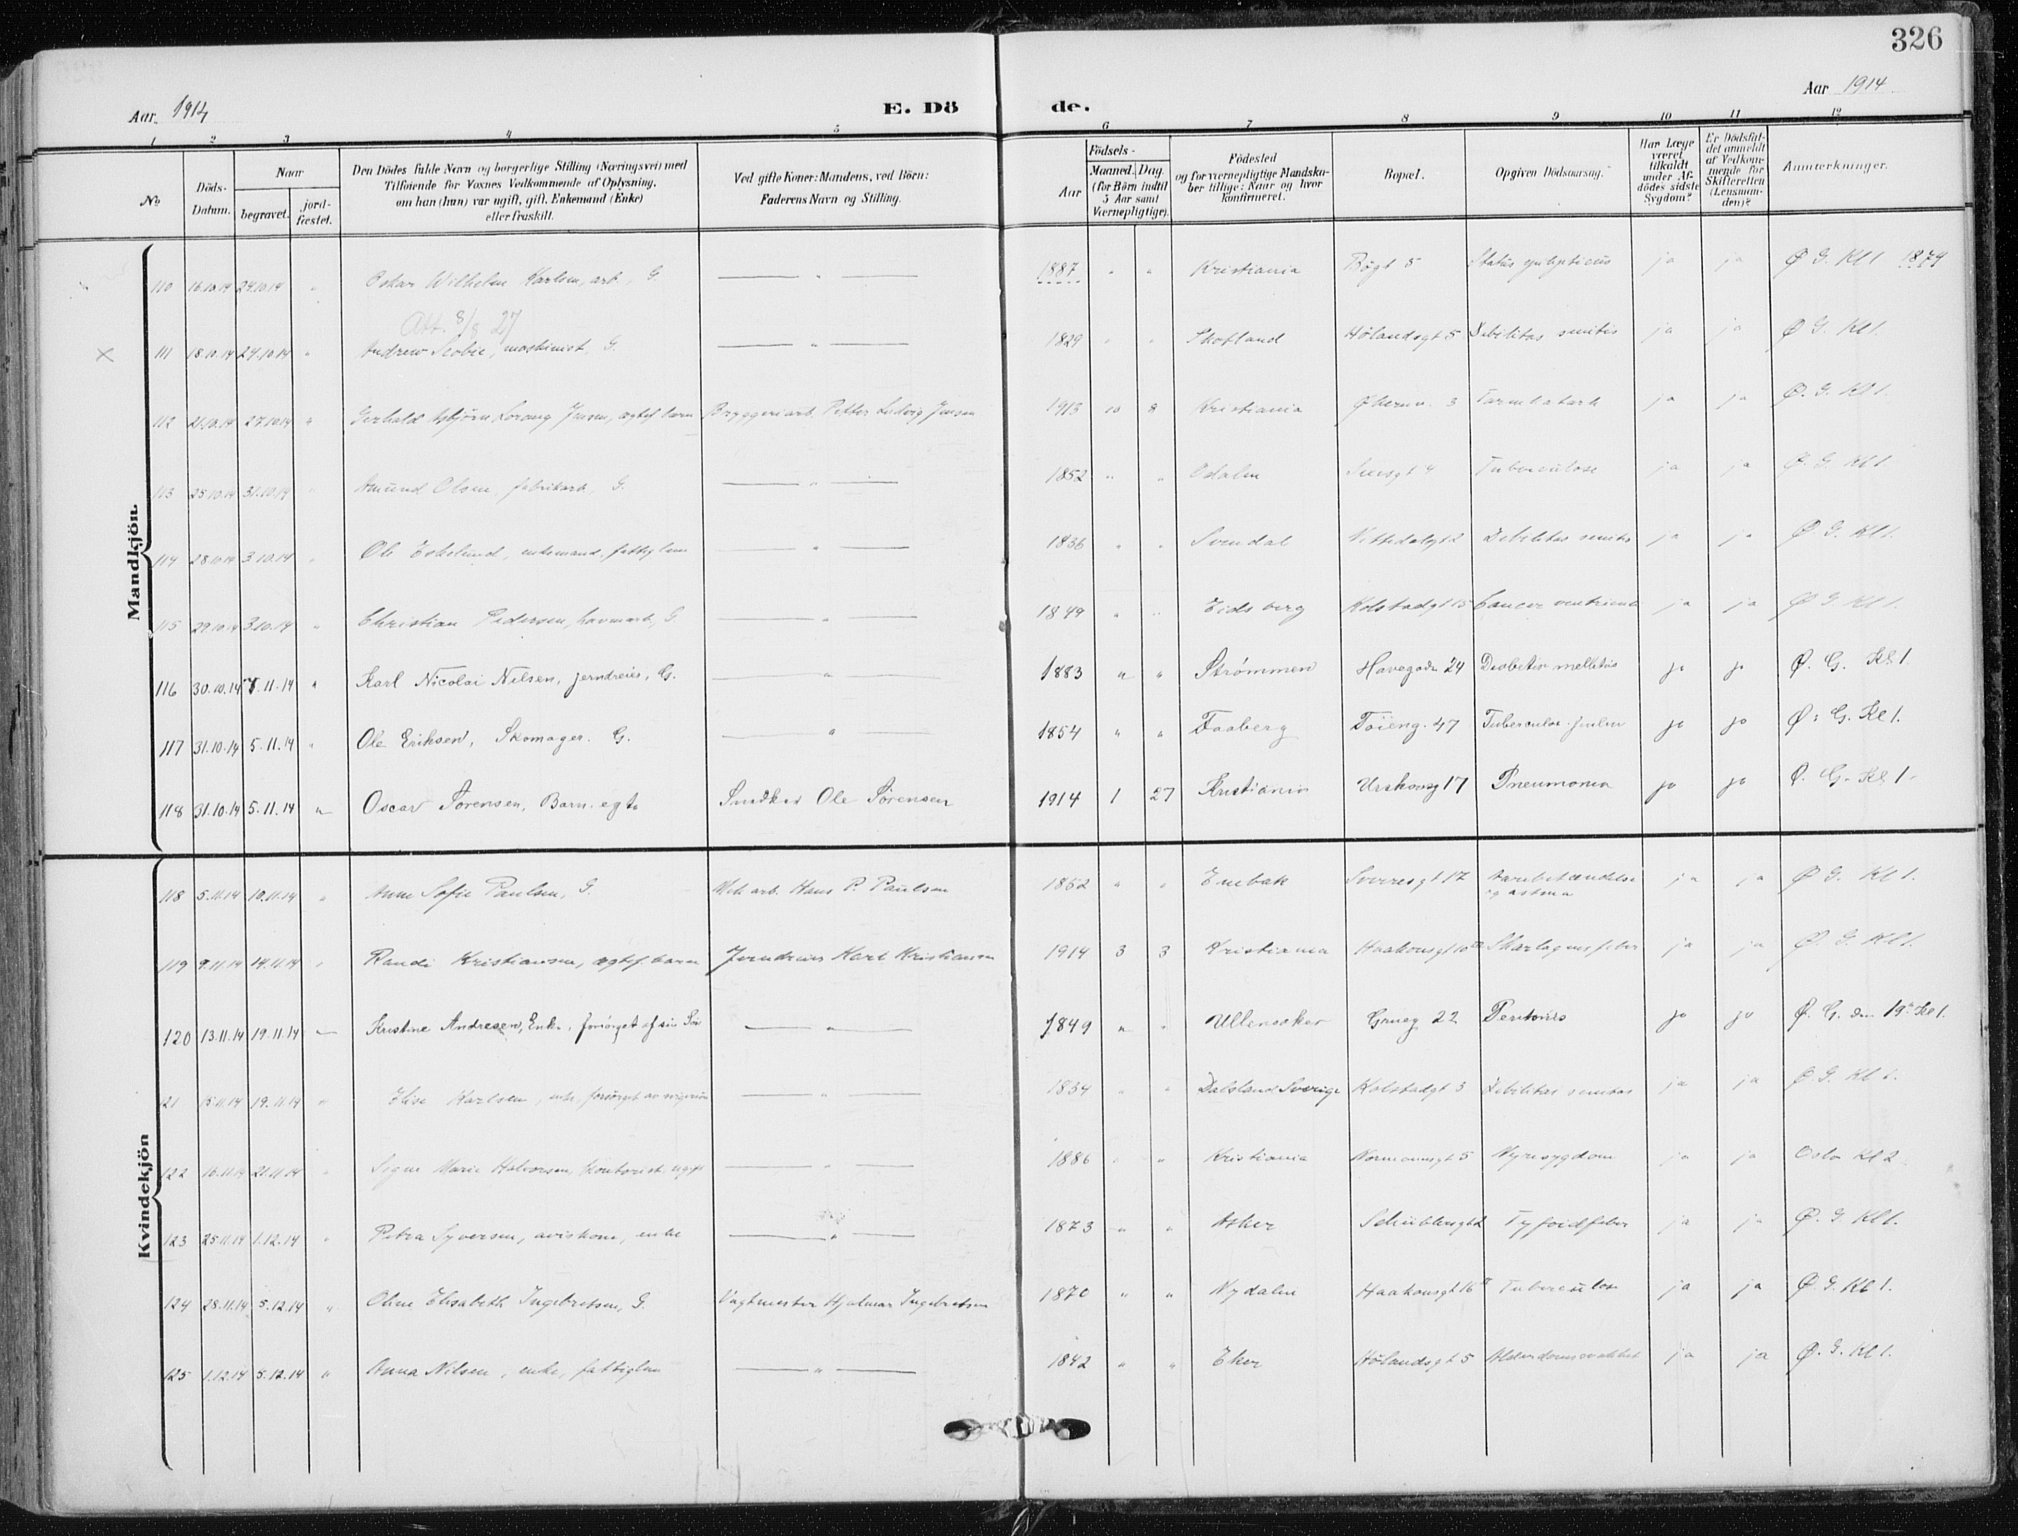 326
Aar 1914
E. Dö de.
Aar 1914
1 2 3 4 5 6 7 8 9 10 11 12
No
Döds-Datum.
Naar
begravet.
jord-fæstet.
Den Dödes fulde Navn og borgerlige Stilling (Næringsvei) med
Tilföiende for Voxnes Vedkommende af Oplysning,
om han (hun) var ugift, gift, Enkemand (Enke)
eller fraskilt.
Ved gifte Koner: Mandens, ved Börn:
Faderens Navn og Stilling.
Födsels-
Aar
Maaned. Dag.
(for Börn indtil
5 Aar samt
Værnepligtige).
Födested
og for værnepligtige Mandska-
ber tillige: Naar og hvor
konfirmeret.
Bopæl.
Opgiven Dödsaarsag.
Har Læge
været
tilkaldt
under Af-
dödes sidste
Sygdom?
Er Dödsfal-
det anmeldt
af Vedkom-
mende for
Skifteretten
(Lensman-
den)?
Anmærkninger.
Mandkjön.
110 16.10.14 24.10.14 " Oskar Wilhelm Karlsen, arb., G. " 1887 " " Kristiania Bøgt 5 Status epilepticus ja ja Ø G. Kl 1 1879
Att. 8/8 27
X 111 18.10.14 24.10.14 " Andrew Scobie, maskinist, G. " 1829 " " Skotland Hølandsgt 5 Debilitas senilis ja ja Ø G. Kl 1.
112 21.10.14 27.10.14 " Asbjørn Jensen, ægtef. barn Bryggeriarb. Petter Ludvig Jensen 1913 10 8 Kristiania Øbernv. 3 Tarmkatarh ja ja Ø. G. Kl 1.
113 25.10.14 31.10.14 " Amund Olsen, fabrikarb., G. " 1852 " " Odalen 4 Tuberculose ja ja Ø. G. Kl 1.
114 28.10.14 3.10.14 " Ole Eskelund, enkemand, fattiglem " 1836 " " Svendal 2 Debilitas senilis ja ja Ø G. Kl 1.
115 29.10.14 3.10.14 " Christian Pedersen, havnearb., G. " 1849 " " Eidsberg Kolstadgt 15 Cancer ventriculi ja ja Ø G Kl 1.
116 30.10.14 7.11.14 " Karl Nicolai Nilsen, jerndreier, G. " 1883 " " Strømmen Havegaden 24 Diabetes mellitus ja ja Ø. G. Kl 1.
117 31.10.14 5.11.14 " Ole Eriksen, Skomager. G. " 1854 " " Faaberg Töieng. 47 Tuberculos. pulm ja ja Ø. G. Kl 1.
118 31.10.14 5.11.14 " Oscar Sørensen, Barn. egte Snedker Ole Sørensen 1914 1 27 Kristiania Urskoug 17 Pneumonia ja ja Ø. G. Kl 1.
Kvindekjön
118 5.11.14 10.11.14 " Anne Sofie Paulsen, G. Mek. arb. Hans P. Paulsen 1852 " " Enebak Sverresgt 17 Aarebetændelse
og astma ja ja Ø G. Kl 1.
119 9.11.14 14.11.14 " Randi Kristiansen, ægtef. barn Jerndreier Karl Kristiansen 1914 3 3 Kristiania Haakonsgt Skarlagensfeber ja ja Ø G Kl 1.
120 13.11.14 19.11.14 Kristine Andresen, Enke, forsörget af sin Sön " 1849 " " Ullensaker Grueg 22 Peritonis ja ja Ø. G. den 19' Kl 1.
21 15.11.14 19.11.14 " Elise Karlsen, enke, forsörget av " 1834 " " Dalsland Sverige Kolstadgt 3 Debilitas senilis ja ja Ø G. Kl 1.
122 16.11.14 21.11.14 " Signe Marie Halvorsen, kontorist, ugift " 1886 " " Kristiania Normannsgt 5 Nyresygdom ja ja Oslo Kl 2
123 25.11.14 1.12.14 " Petra Syversen, aviskone, enke " 1873 " " Asker Schüblersgt 2 Tyfoidfeber ja ja Ø. G Kl 1.
124 28.11.14 5.12.14 " Oline Elisabeth Ingebretsen, G. Vagtmester Hjalmar Ingebretsen 1870 " " Nydalen Haakonsgt 16 Tuberculose ja ja Ø. G. Kl 1.
125 1.12.14 5.12.14 " Anna Nilsen, enke, fattiglem " 1842 " " Eker Hølandsgt 5 Alderdomssvakhet ja ja Ø. G. Kl 1.